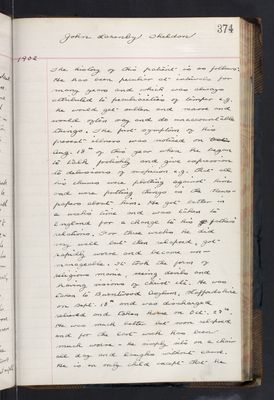 374
John Lazenby Sheldon
1902
The history of this patient is as follows:
He has been peculiar at intervals for
many years and which was always
attributed to peculiarities of temper e.g.
he would get sullen and morose and
would often say and do unaccountable
things. The first symptoms of his
present illness was noticed on
18th of this year when he began
to talk foolishly and give expression
to delusions of suspicion e.g. that all
his chums were plotting against him
and were putting things in the news-
papers about him. He got better in
a weeks time and was taken to
England for a change to his
relations. For three weeks he did
very well but then relapsed, got
rapidly worse and became un-
manageable. It took the form of
religious mania, seeing devils and
having visions of Christ etc. He was
taken to Burntwood Asylum, Staffordshire
on Sept. 18th and was discharged
relieved and taken home on Oct.
He was much better but soon relapsed
and for the last week has been
much worse - he simply sits on a chair
all day and laughs without cause.
He is an only child except that he